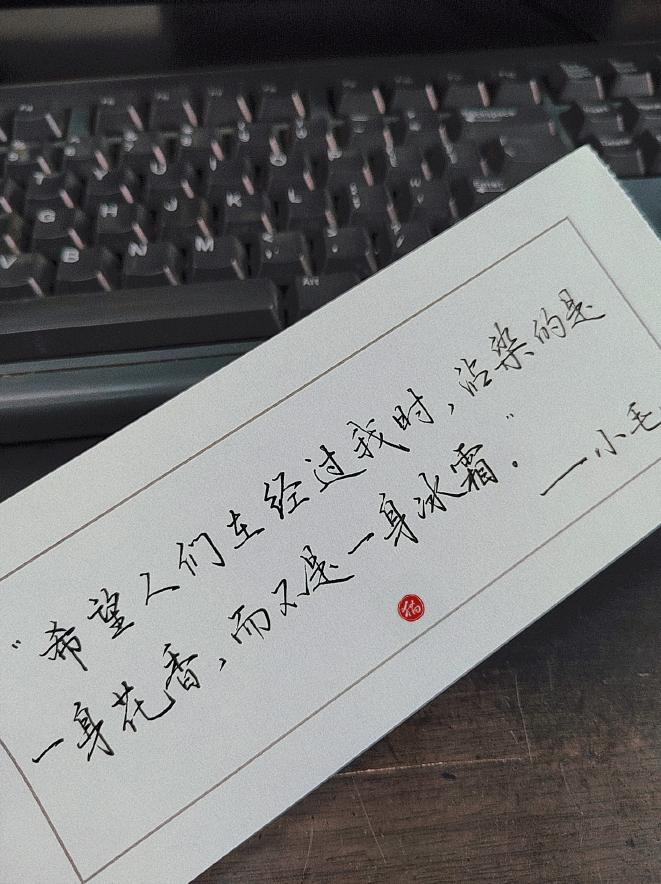 Backspace
Y U
Enter
G H J K L
V B N M
Alt
“希望人们在经过我时，沾染的是
一身花香，而不是一身冰霜。”
——小毛